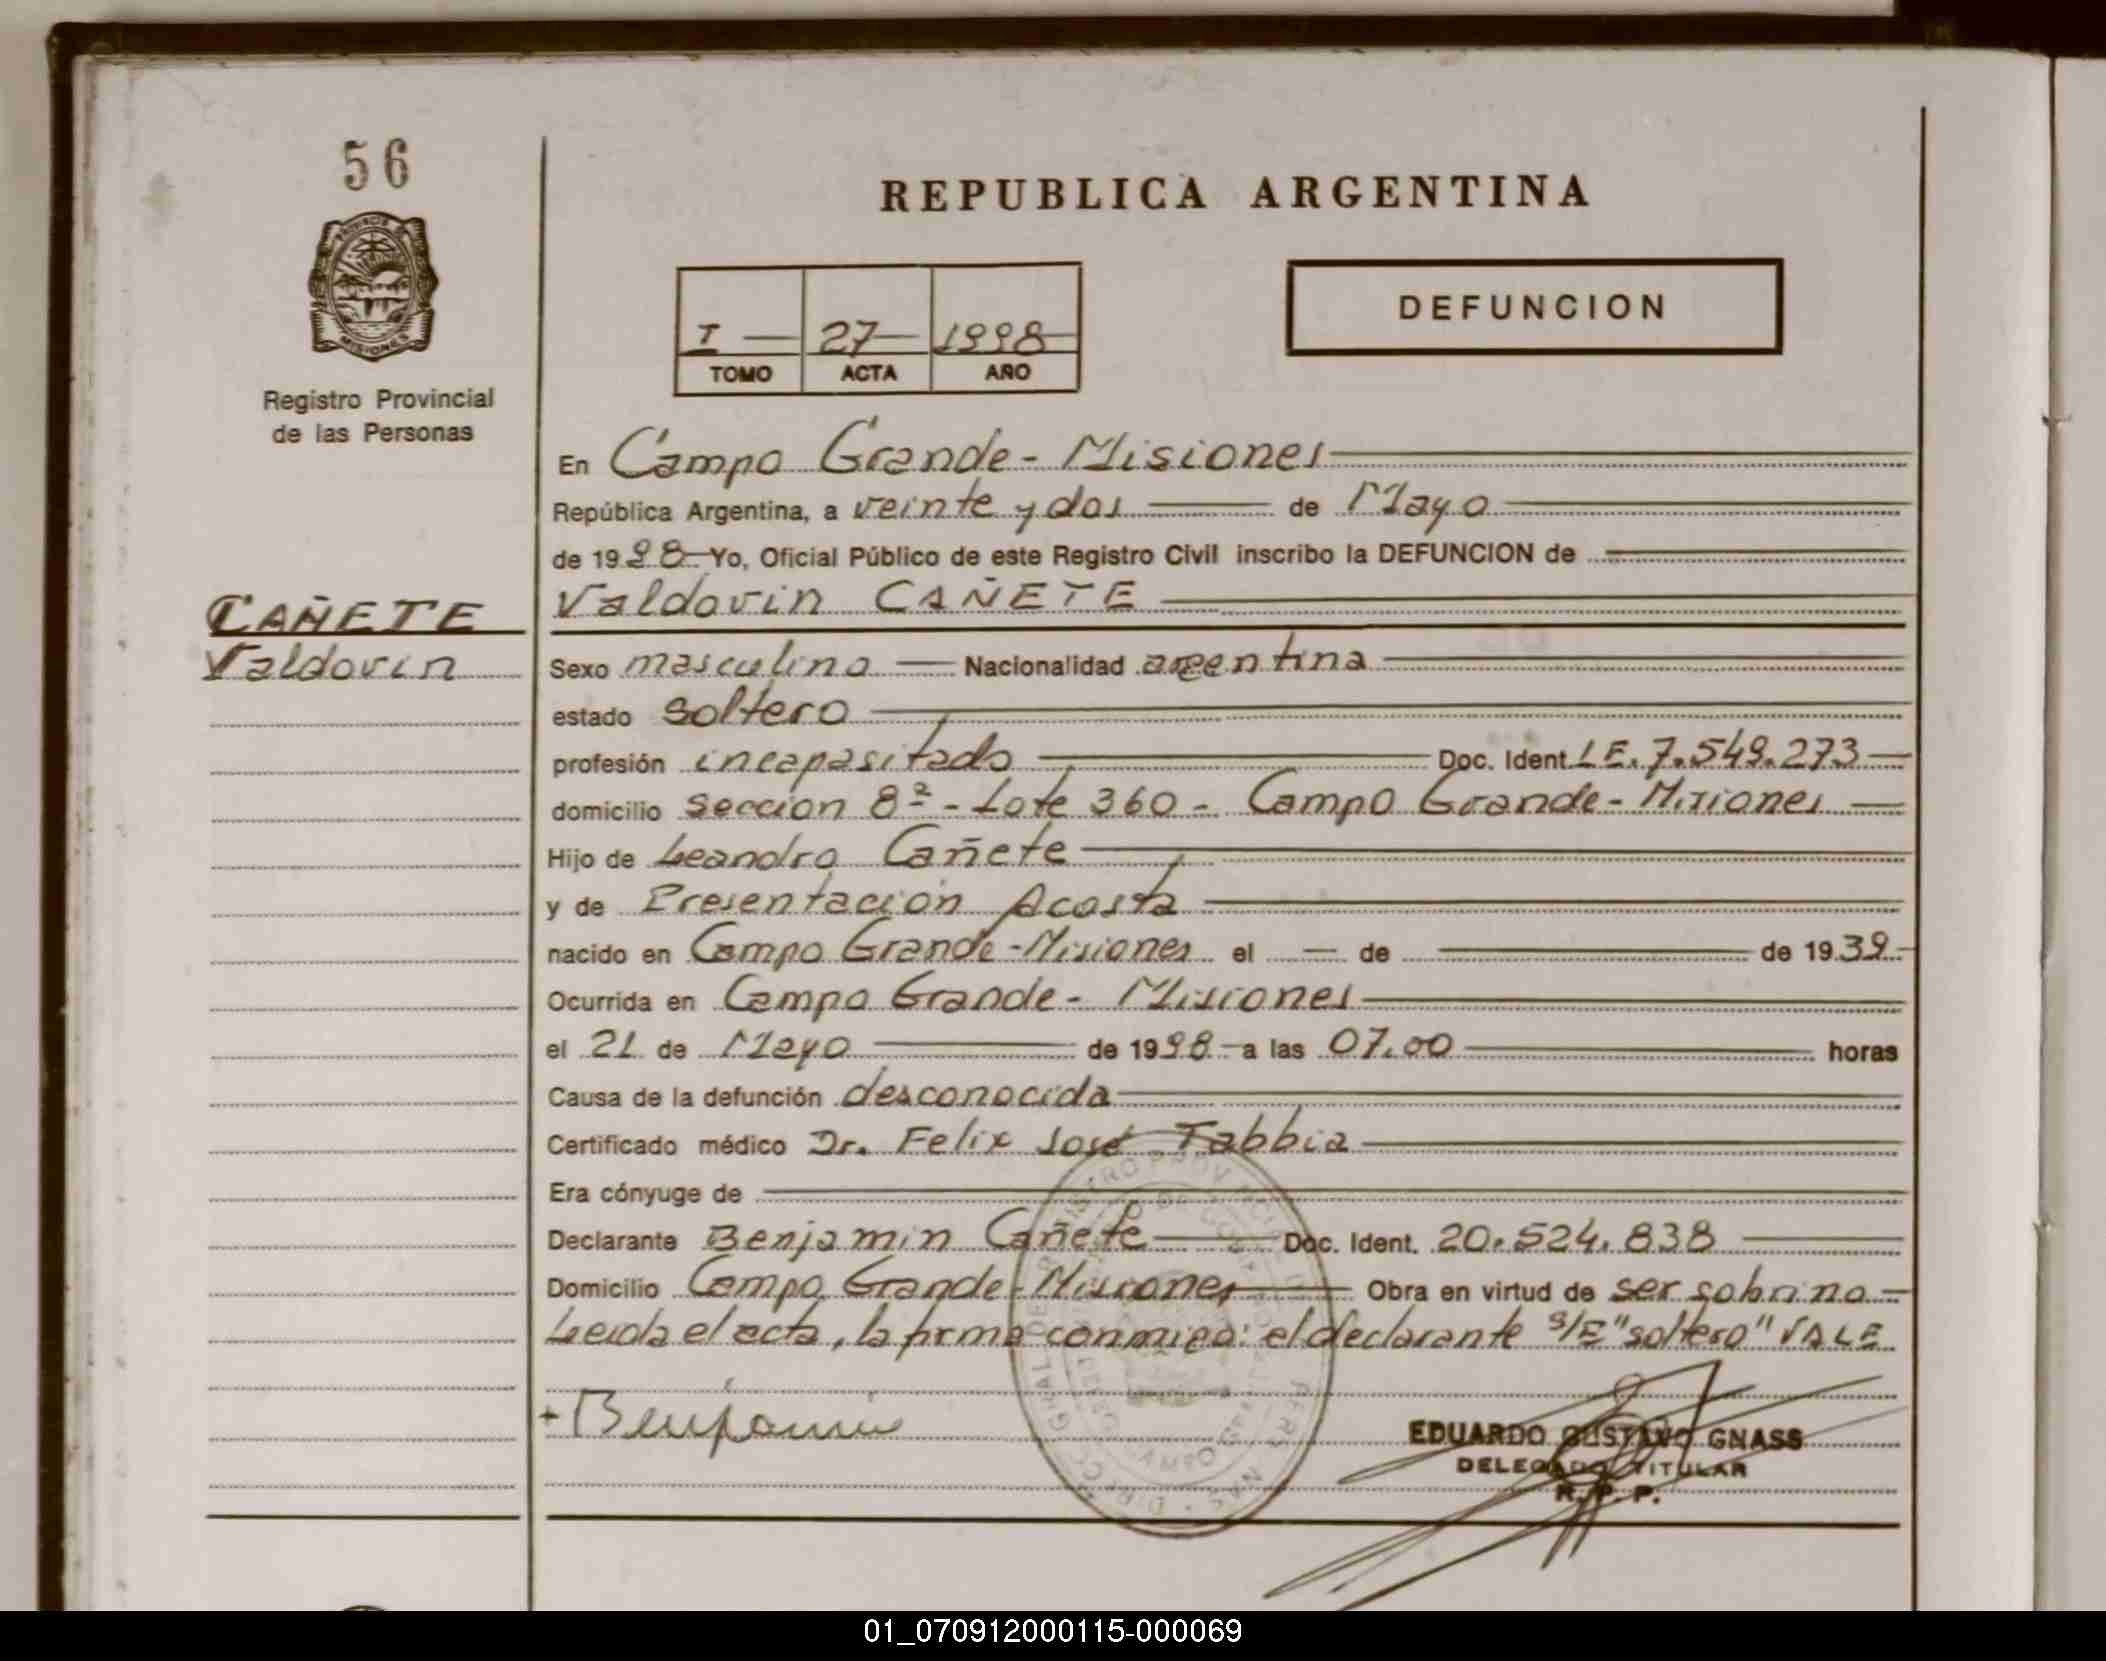 56
REPUBLICA ARGENTINA
DEFUNCION
I — 27 — 1998
TOMO ACTA AÑO
MISIONES
Registro Provincial
de las Personas
CAÑETE
Valdovin
En Campo Grande - Misiones
República Argentina, a veinte y dos de Mayo
de 1998 Yo, Oficial Público de este Registro Civil inscribo la DEFUNCION de
Valdovin CAÑETE
Sexo masculino Nacionalidad argentina
estado soltero
profesión incapasitado Doc. Ident LE. 7.549.273
domicilio sección 8ª - Lote 360 - Campo Grande - Misiones
Hijo de Leandro Cañete
y de Presentación Acosta
nacido en Campo Grande - Misiones el — de — de 1939
Ocurrida en Campo Grande - Misiones
el 21 de Mayo de 1998 a las 07.00 horas
Causa de la defunción desconocida
Certificado médico Dr. Felix José Tabbia
Era cónyuge de
Declarante Benjamin Cañete Doc. Ident. 20.524.838
Domicilio Campo Grande - Misiones Obra en virtud de ser sobrino
Leida el acta, la firma conmigo: el declarante S/E "soltero" VALE
+ Benjamin
EDUARDO GUSTAVO GNASS
DELEGADO TITULAR
R. P. P.
01_070912000115-000069